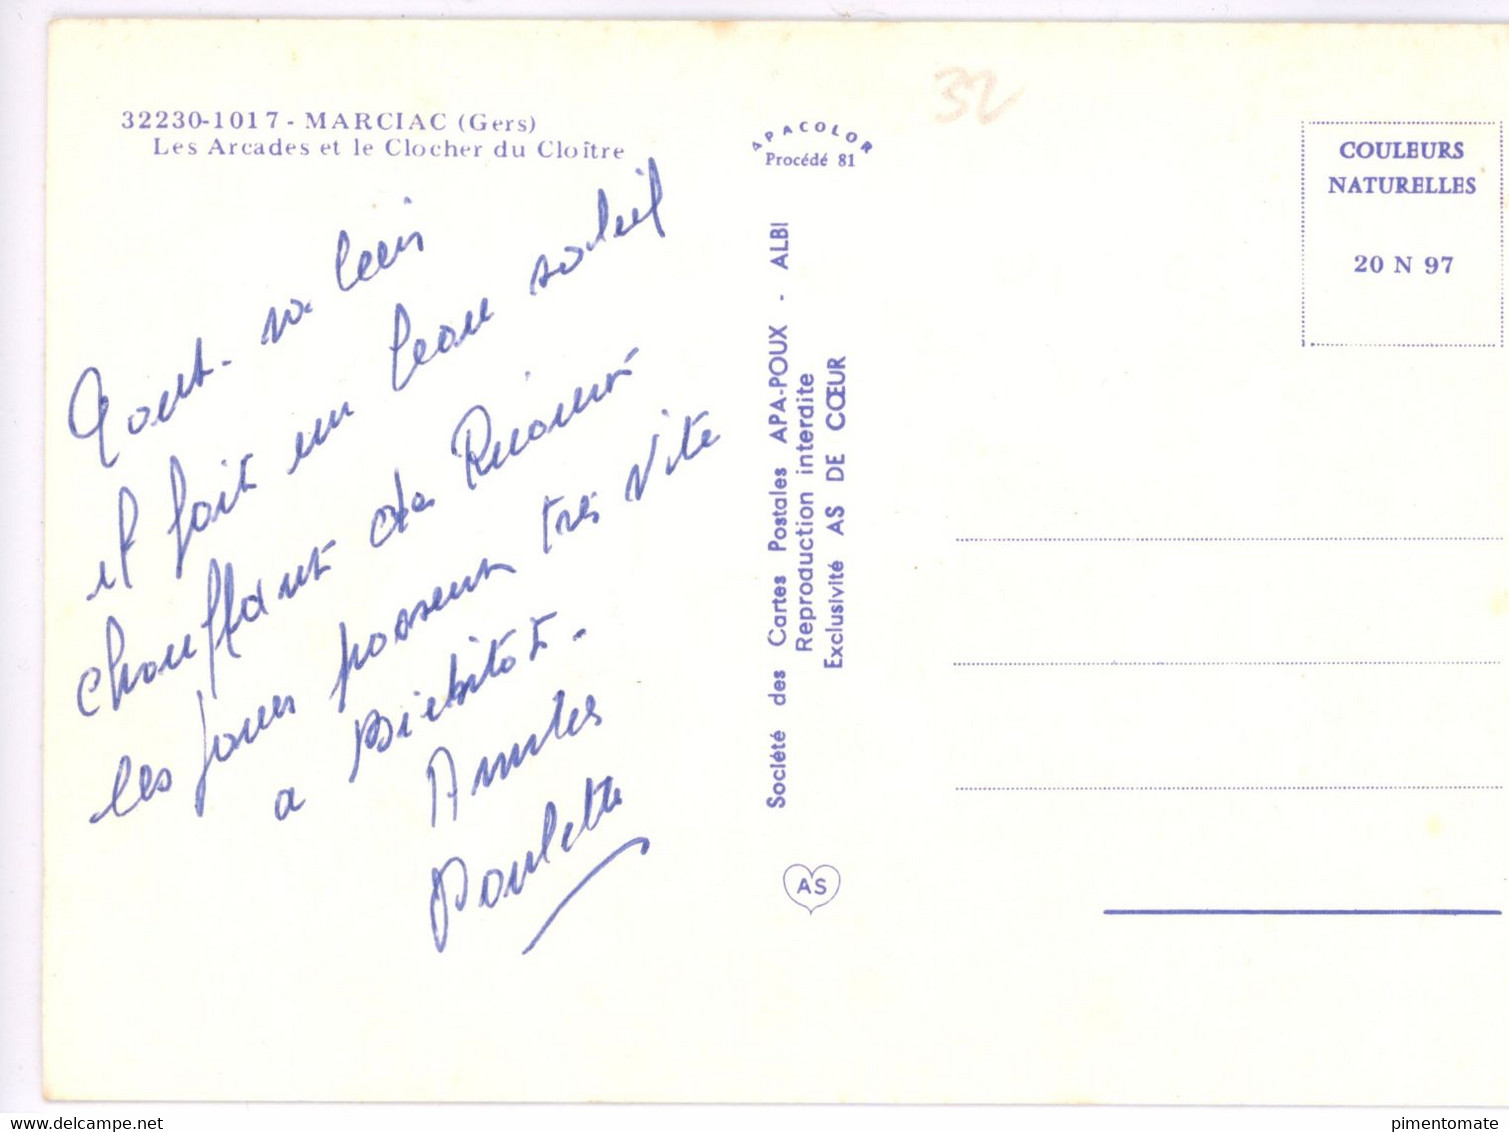 32230-1017 - MARCIAC (Gers)
Les Arcades et le Clocher du Cloître
Tout va bien
il fait un beau soleil
chauffant de
les jours passent très vite
a Bientot.
Amitiés
Paulette
APACOLOR
Procédé 81
Société des Cartes Postales APA-POUX - ALBI
Reproduction interdite
Exclusivité AS DE CŒUR
AS
32
COULEURS
NATURELLES
20 N 97
delcampe.net
pimentomate